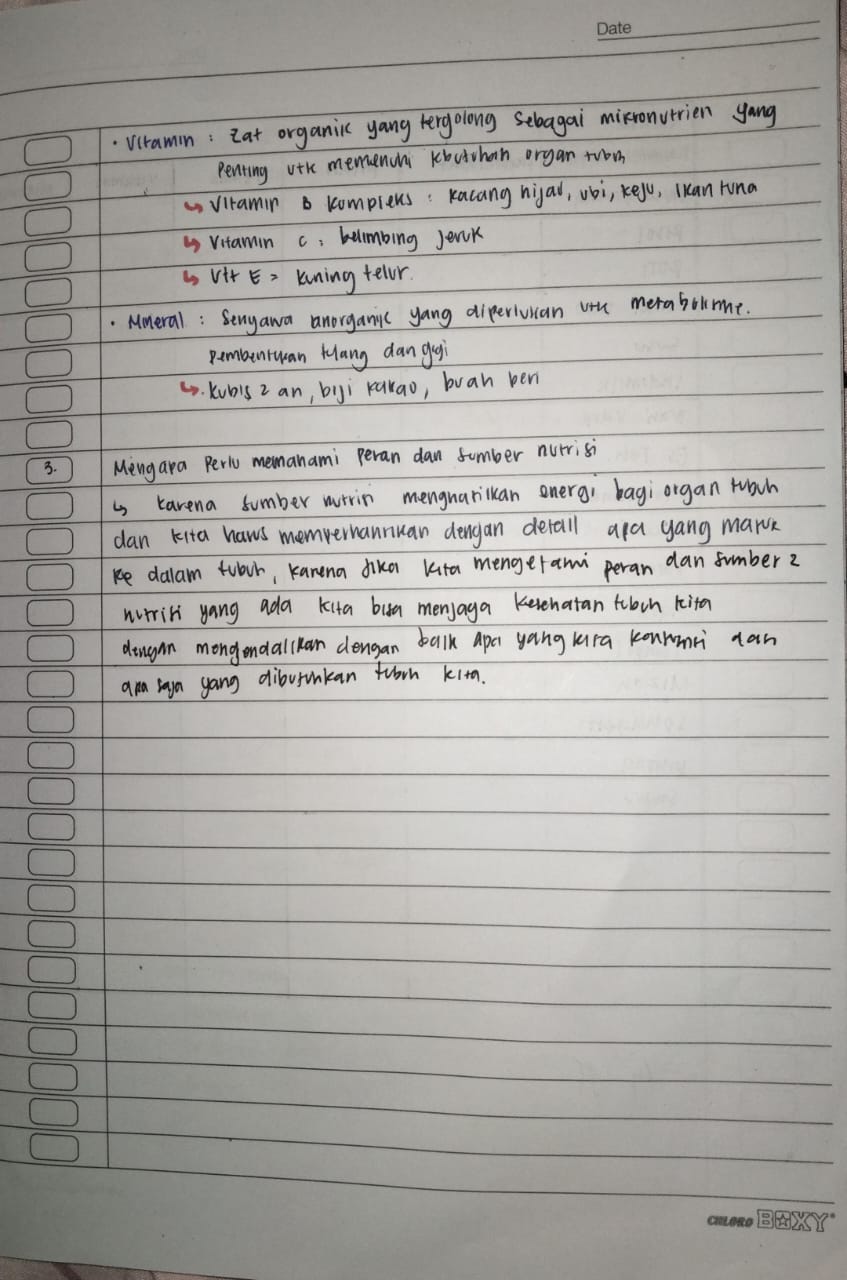 Date
• Vitamin : Zat organik yang tergolong sebagai mikronutrien yang
penting utk memenuhi kbutuhan organ tubuh
↳ Vitamin B kompleks : kacang hijau, ubi, keju, ikan tuna
↳ Vitamin C : belimbing jeruk
↳ Vit E = kuning telur.
• Mineral : Senyawa anorganik yang diperlukan utk metabolisme.
pembentukan tulang dan gigi
↳. kubis 2 an, biji kakao, buah beri
3. Mengapa perlu memahami peran dan sumber nutrisi
↳ karena sumber nutrisi menghasilkan energi bagi organ tubuh
dan kita harus memperhatikan dengan detail apa yang masuk
ke dalam tubuh, karena jika kita mengetahui peran dan sumber 2
nutrisi yang ada kita bisa menjaga kesehatan tubuh kita
dengan mengendalikan dengan baik apa yang kita konsumsi dan
apa saja yang dibutuhkan tubuh kita.
CHLORO BOXY